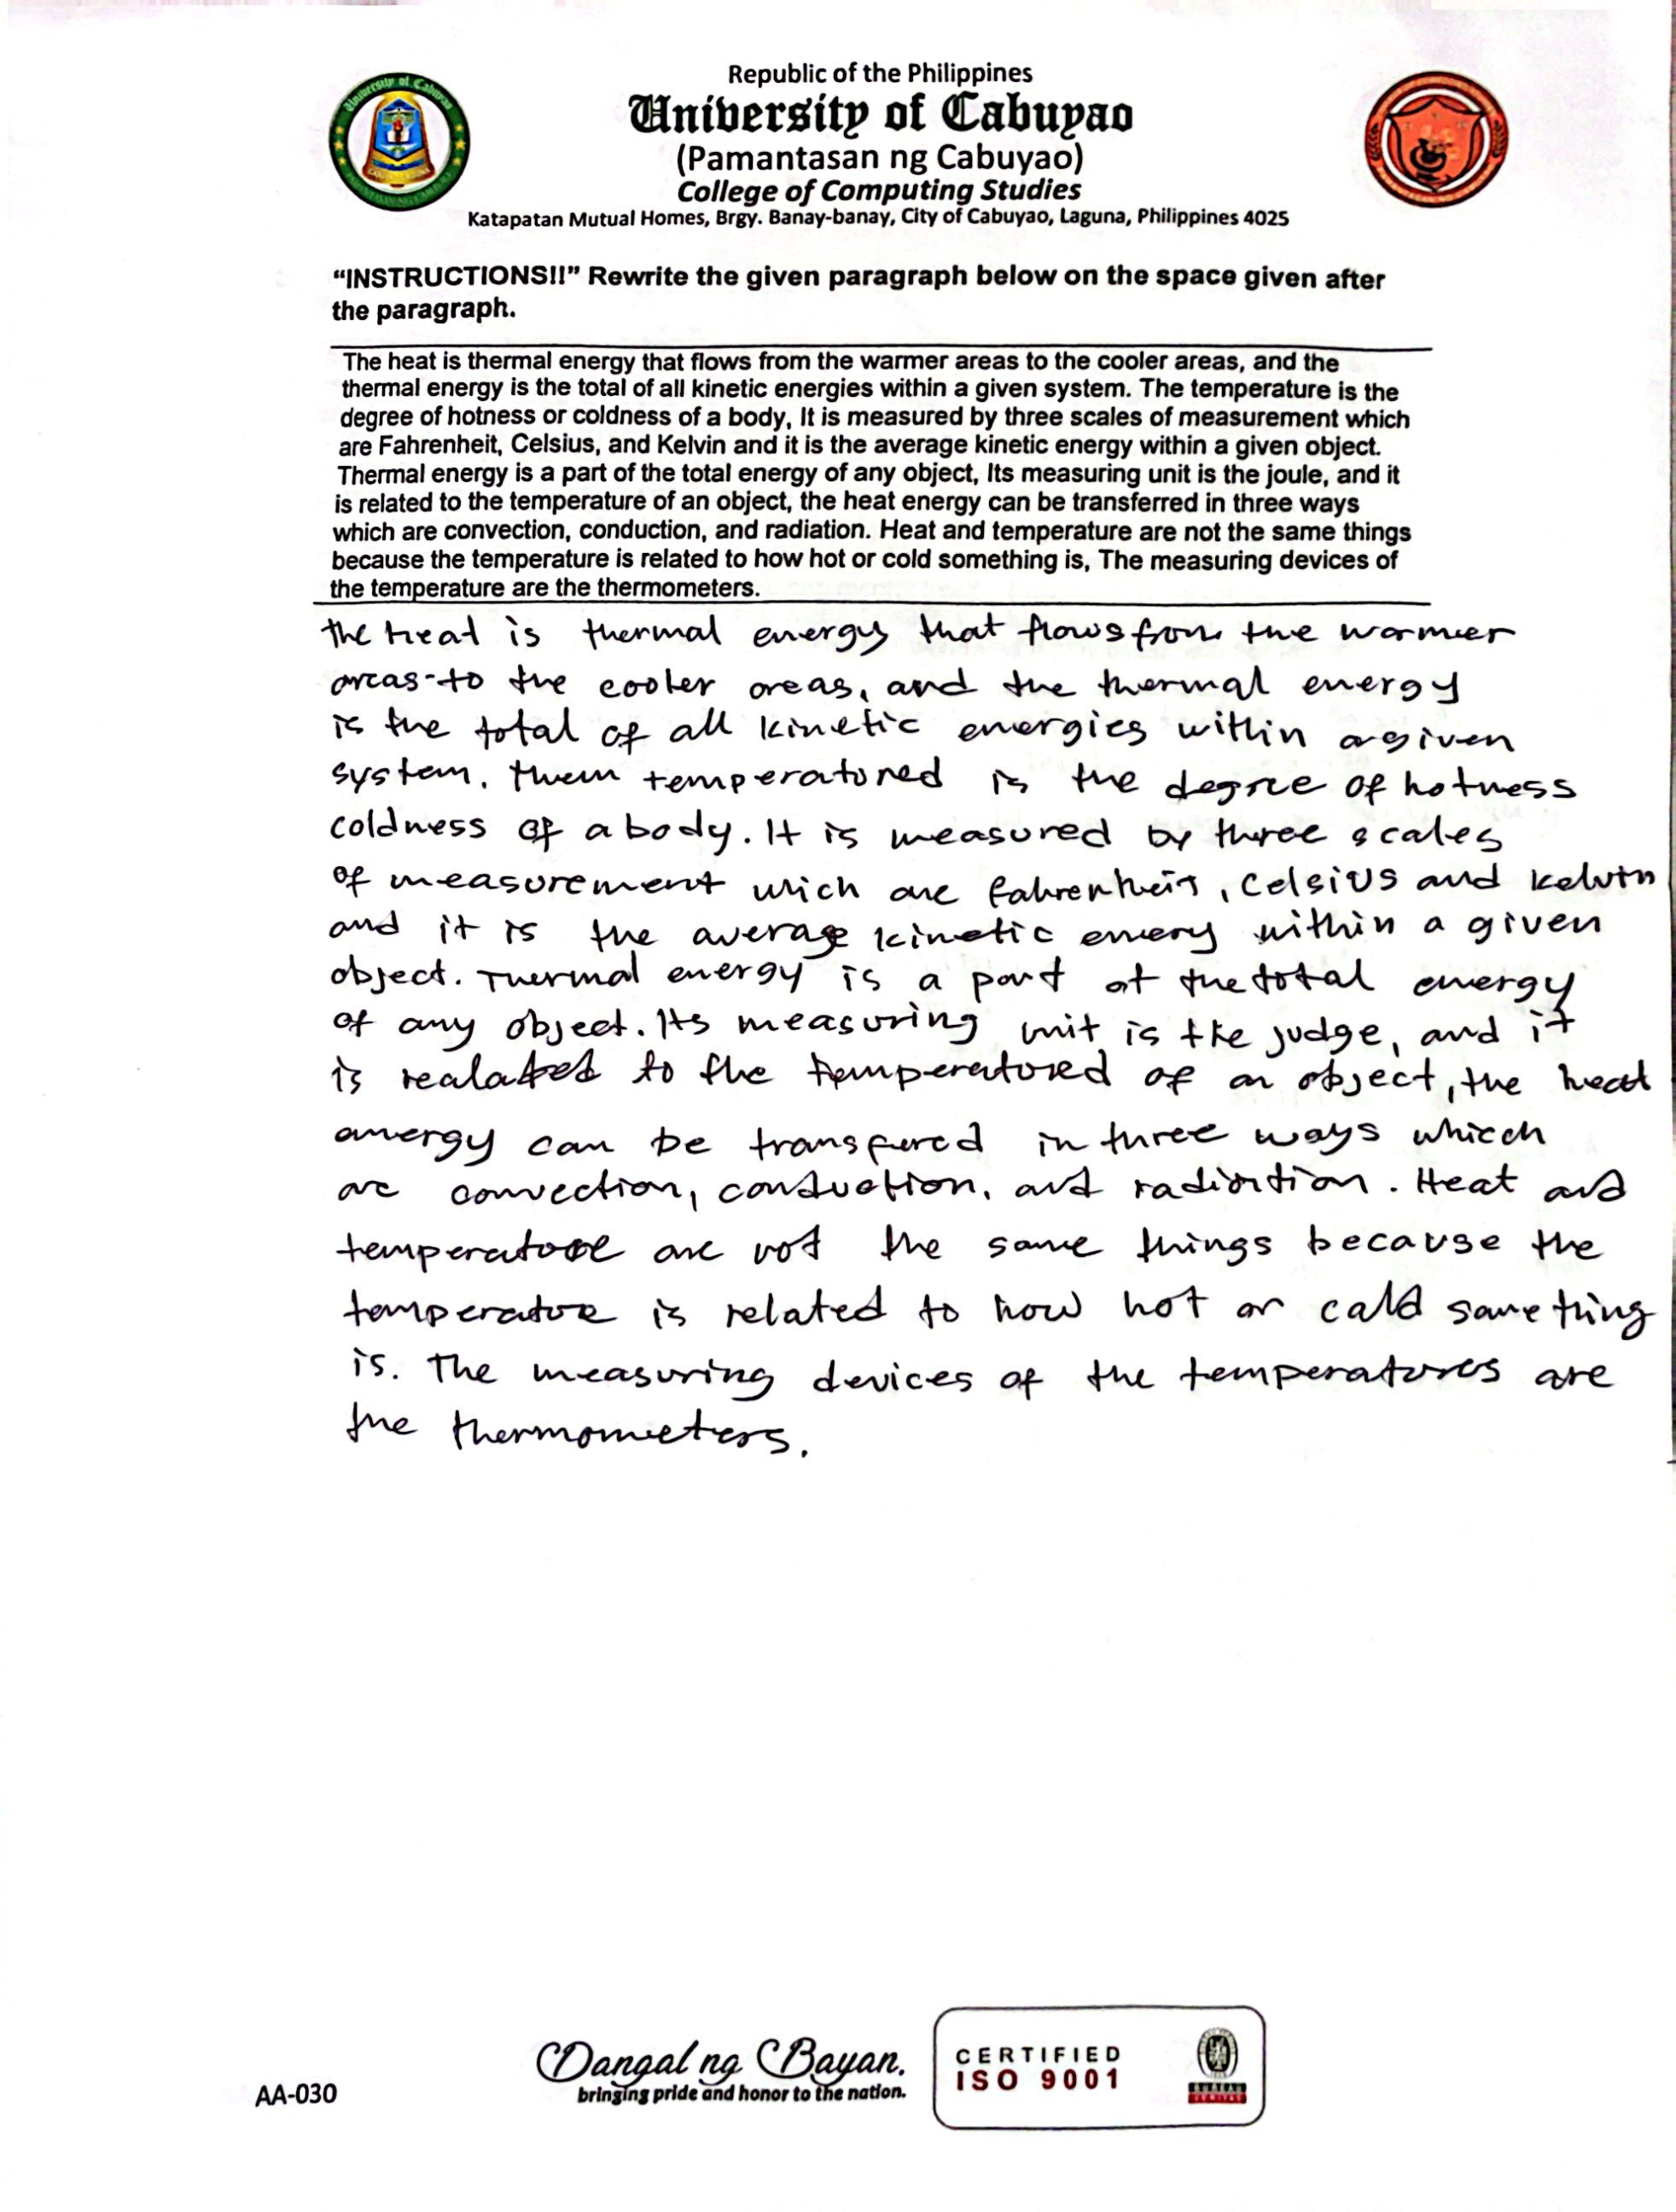 Republic of the Philippines
University of Cabuyao
(Pamantasan ng Cabuyao)
College of Computing Studies
Katapatan Mutual Homes, Brgy. Banay-banay, City of Cabuyao, Laguna, Philippines 4025
University of Cabuyao
"INSTRUCTIONS!!" Rewrite the given paragraph below on the space given after
the paragraph.
The heat is thermal energy that flows from the warmer areas to the cooler areas, and the
thermal energy is the total of all kinetic energies within a given system. The temperature is the
degree of hotness or coldness of a body, It is measured by three scales of measurement which
are Fahrenheit, Celsius, and Kelvin and it is the average kinetic energy within a given object.
Thermal energy is a part of the total energy of any object, Its measuring unit is the joule, and it
is related to the temperature of an object, the heat energy can be transferred in three ways
which are convection, conduction, and radiation. Heat and temperature are not the same things
because the temperature is related to how hot or cold something is, The measuring devices of
the temperature are the thermometers.
the Heat is thermal energy that flows from the warmer
areas-to the cooler areas, and the thermal energy
is the total of all kinetic energies within a given
system. Them temperatured is the degree of hotness
coldness of a body. It is measured by three scales
of measurement wich are fahrenheit, Celsius and kelvin
and it is the average kinetic enery within a given
object. Thermal energy is a part of the total energy
of any object. Its measuring unit is the judge, and it
is realated to the temperatured of an object, the heat
energy can be transfured in three ways which
are convection, conduction, and radiation. Heat and
temperature are not the same things because the
temperature is related to how hot or cald something
is. The measuring devices of the temperatures are
the thermometers.
AA-030
Dangal ng Bayan.
bringing pride and honor to the nation.
CERTIFIED
ISO 9001
BUREAU
VERITAS